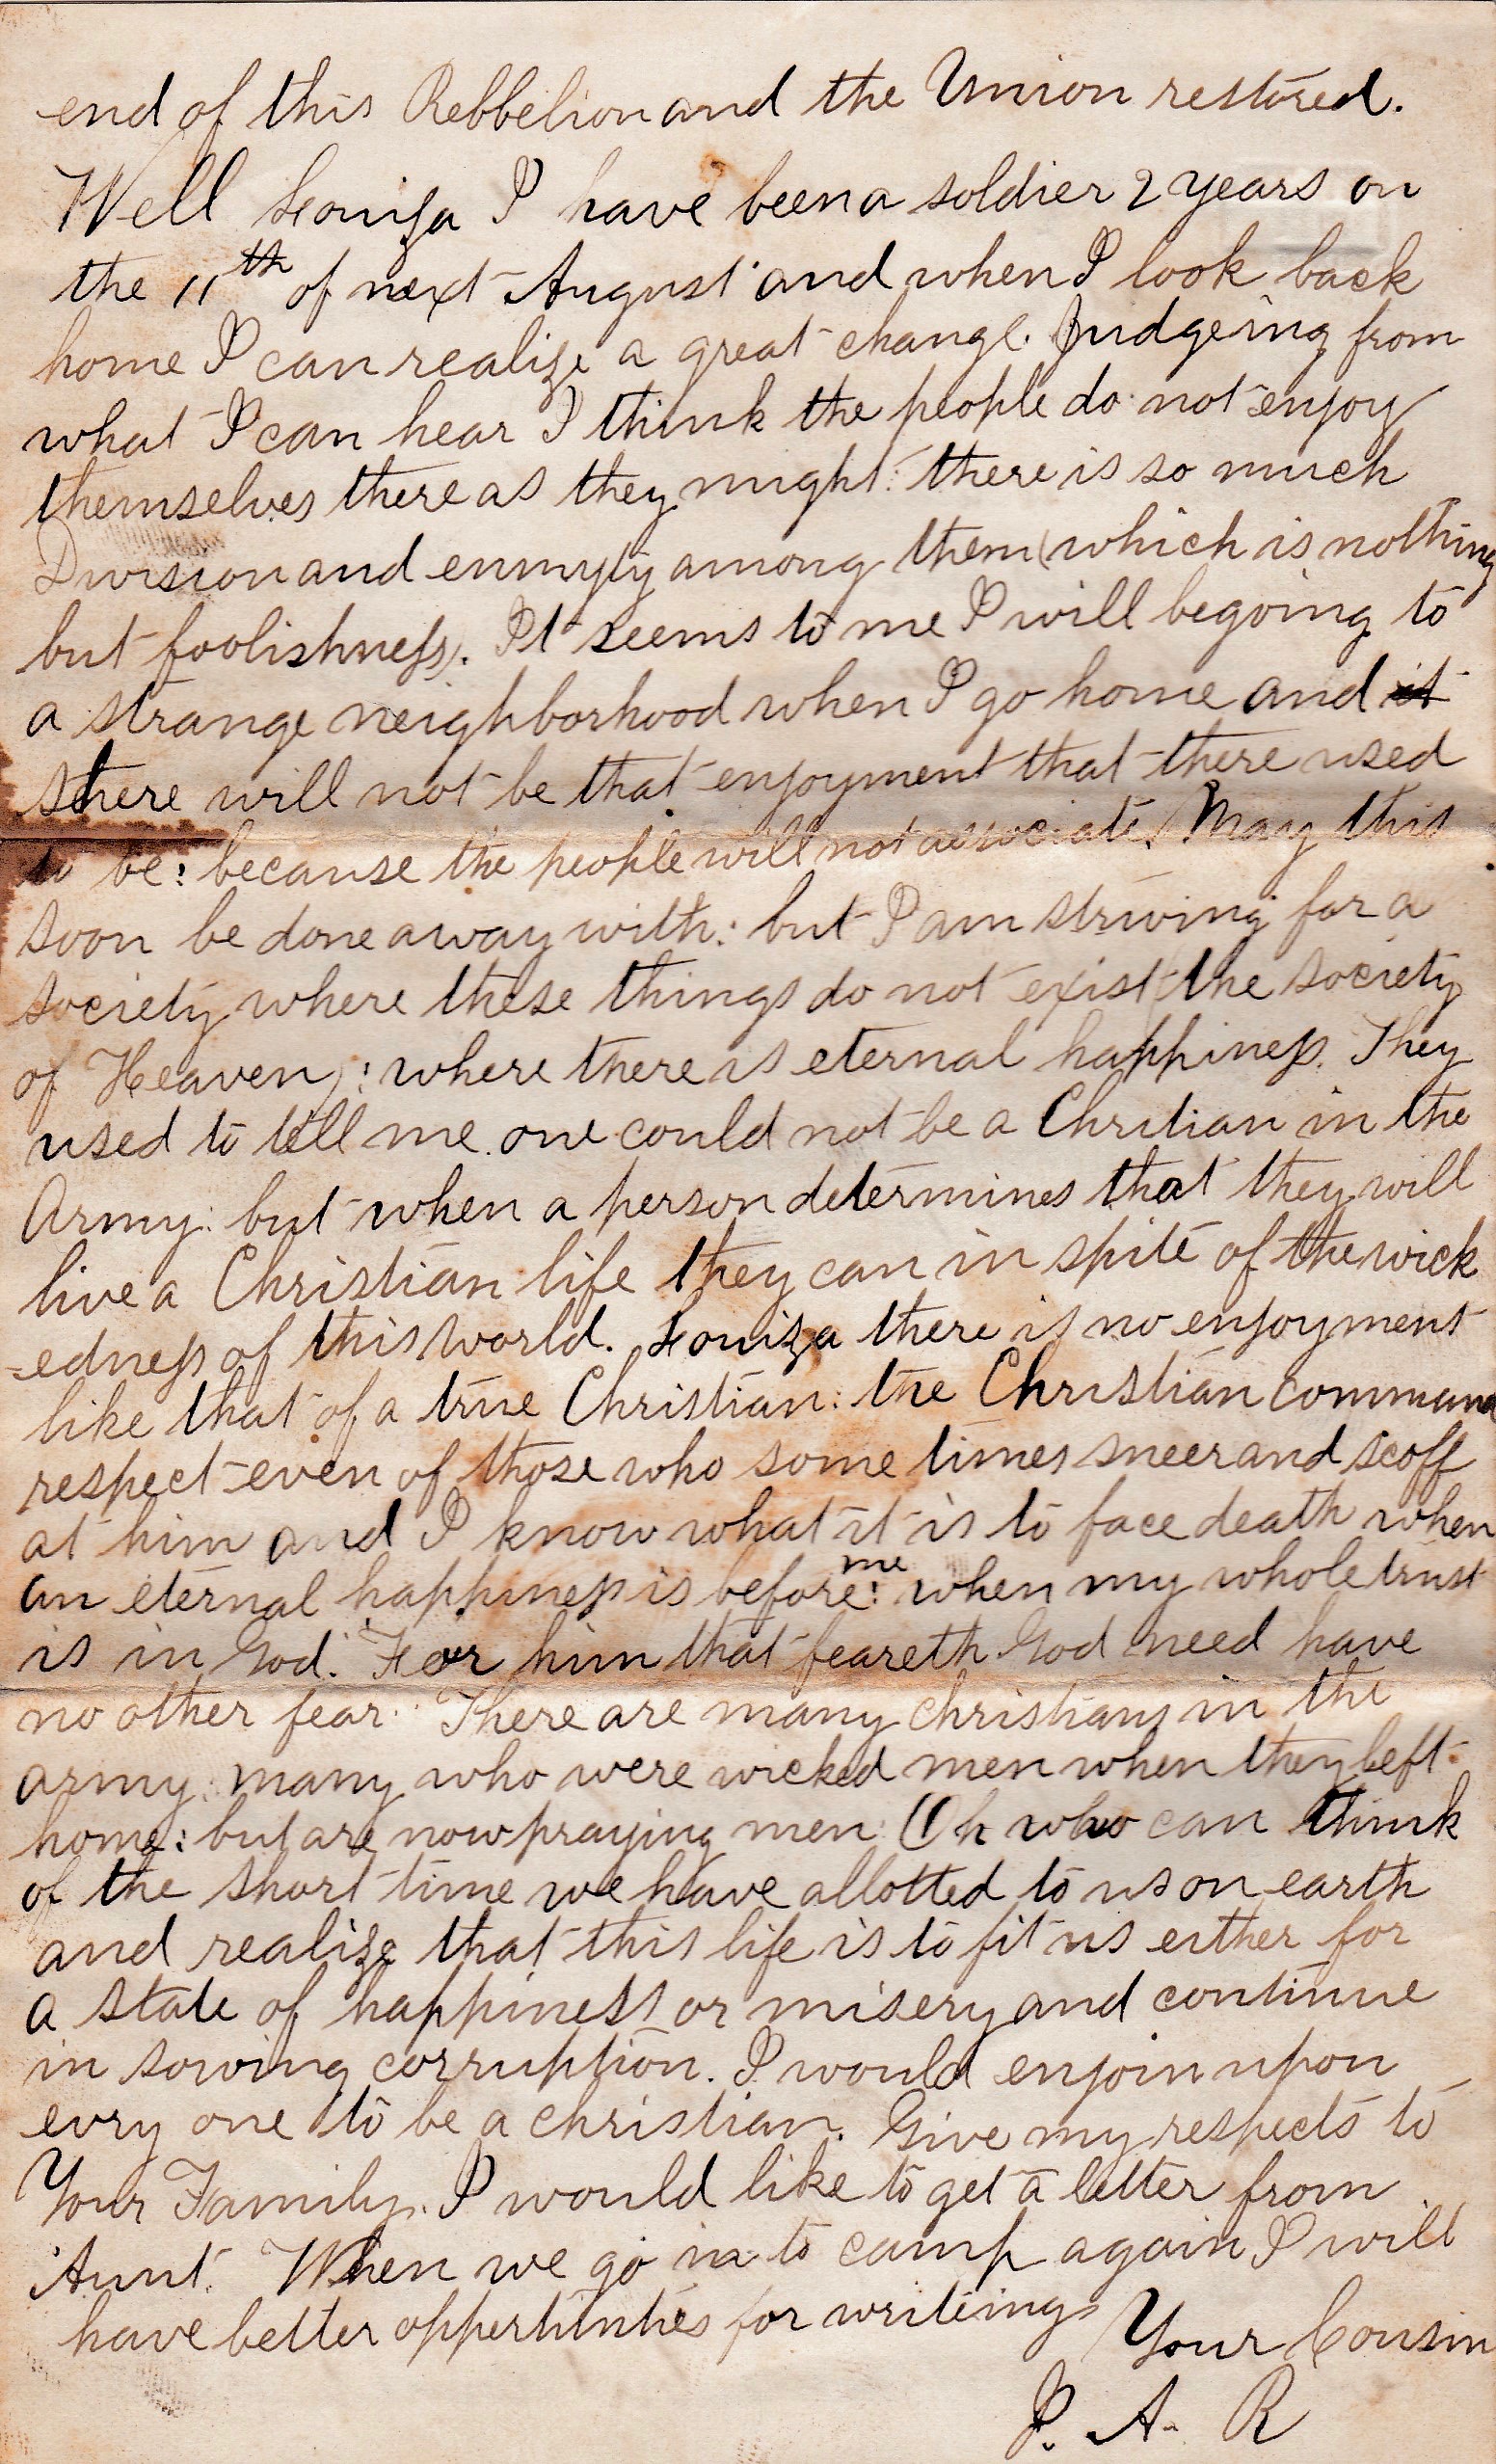 end of this Rebbelion and the Union restored.
Well Louiza I have been a soldier 2 years on
the 11th of next August and when I look back
home I can realize a great change. Judgeing from
what I can hear I think the people do not enjoy
themselves there as they might: there is so much
Division and enmyty among them (which is nothing
but foolishness). It seems to me I will be going to
a strange neighborhood when I go home and it
there will not be that enjoyment that there used
to be: because the people will not associate. May this
soon be done away with: but I am striving for a
society where these things do not exist (the society
of Heaven): where there is eternal happiness. They
used to tell me one could not be a Chritian in the
Army: but when a person determines that they will
live a Christian life they can in spite of the wick
-edness of this World. Louiza there is no enjoyment
like that of a true Christian: the Christian command
respect even of those who some times sneer and scoff
at him and I know what it is to face death when
an eternal happiness is before me: when my whole trust
is in God. For him that feareth God need have
no other fear. There are many christians in the
army: many who were wicked men when they left
home: but are now praying men. Oh who can think
of the short time we have allotted to us on earth
and realize that this life is to fit us either for
a state of happiness or misery and continue
in sowing corruption. I would enjoin upon
evry one to be a christian. Give my respects to
Your Family. I would like to get a letter from
Aunt. When we go in to camp again I will
have better oppertunties for writeing
Your Cousin
P. A. R